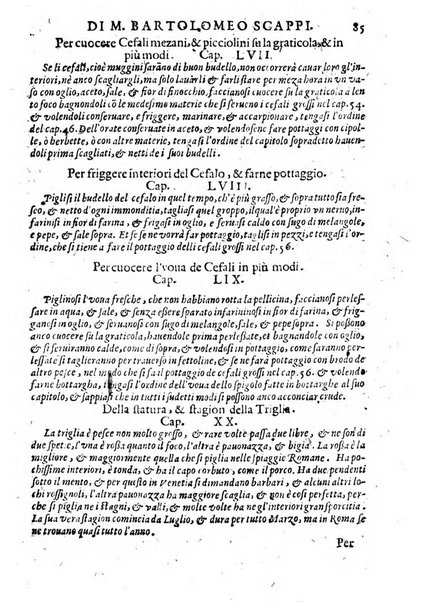 DI M. BARTOLOMEO SCAPPI. 85
Per cuocere Cefali mezani, & picciolini su la graticola, & in
più modi. Cap. LVII.
Se li cefali, cioè muggini saráno di buon budello, non occorrerà cauar loro gl'in-
teriori, nè anco scagliargli, ma solo lauarli & farli stare per meza hora in vn va-
so con oglio, aceto, sale, & fior di finocchio, facciansi cuocere su la graticola à len
to foco bagnandoli cõ le medesime materie che si serueno i cefali grossi nel cap. 54.
& volendoli conseruare, & friggere, marinare, & accarpionare, tengasi l'ordine
del cap. 46. Dell'orate conseruate in aceto, & volendone far pottaggi con cipol-
le, & herbette, ò con altre materie, tengasi l'ordine del capitolo sopradetto hauen-
doli prima scagliati, & netti de i suoi budelli.
Per friggere interiori del Cefalo, & farne pottaggio.
Cap. LVIII.
Piglisi il budello del cefalo in quel tempo, ch'è più grosso, & sopra tutto sia fre-
sco, & netto d'ogni immonditia, tagliasi quel groppo, ilqual'è proprio vn neruo, in-
farinisi in fior di farina, & frigasi in oglio, & seruasi caldo con sugo di melangole,
e pepe, & sale sopra. Et se ne vorrà far pottaggi, taglisi in pezzi, & tengasi l'or-
dine, che si tiene a fare il pottaggio delli cefali grossi nel cap. 56.
Per cuocere l'voua de Cefali in più modi.
Cap. LIX.
Piglinosi l'voua fresche, che non habbiano rotta la pellicina, faccianosi perles-
sare in aqua, & sale, & senza esserne sparato infarininosi in fior di farina, & frig-
gansi in oglio, & seruanosi con sugo di melangole, sale, & pepe sopra. Si possono
anco cuocere su la graticola, hauendole prima perlessate, & fatte stare in adobbo, &
seruiranosi calde, come di sopra, & volendosi in pottaggio, come saranno perles-
sate si taglieranno per trauerso in fettoline, & si faranno pottaggi con brodo de
altro pesce, nel modo che si fà il pottaggio de cefali grossi nel cap. 56 & volendo-
farne bottargha, tengasi l'ordine dell'voua del spigolo fatte in bottarghe al suo
capitolo, & sappiasi che in tutti i sudetti modi si possono anco acconciar crude.
Della statura, & stagion della Triglia.
Cap. XX.
La triglia è pesce non molto grosso, & rare volte passa due libre, & ne son di
due spetie, l'vna è rossa quanto il foco, l'altra è pauonazza, & bigia. La rossa è la
migliore, & maggiormente quella che si piglia nelle spiaggie Romane. Ha po-
chissime interiori, è tonda, & ha il capo curbuto, come il porco. Ha due pendenti
sotto il mento, & per questo in Venetia si dimandano barbari, & in alcuni altri lo-
chi rossignoli, l'altra pauonazza ha maggiore scaglia, & non è cosi perfetta, per-
che si piglia ne i stagni, & valli, & molte volte ingrattitia in porto di mare.
La sua vera stagion comincia da Luglio, & dura per tutto Marzo, ma in Roma se
ne trouano quasi tutto l'anno.
Per